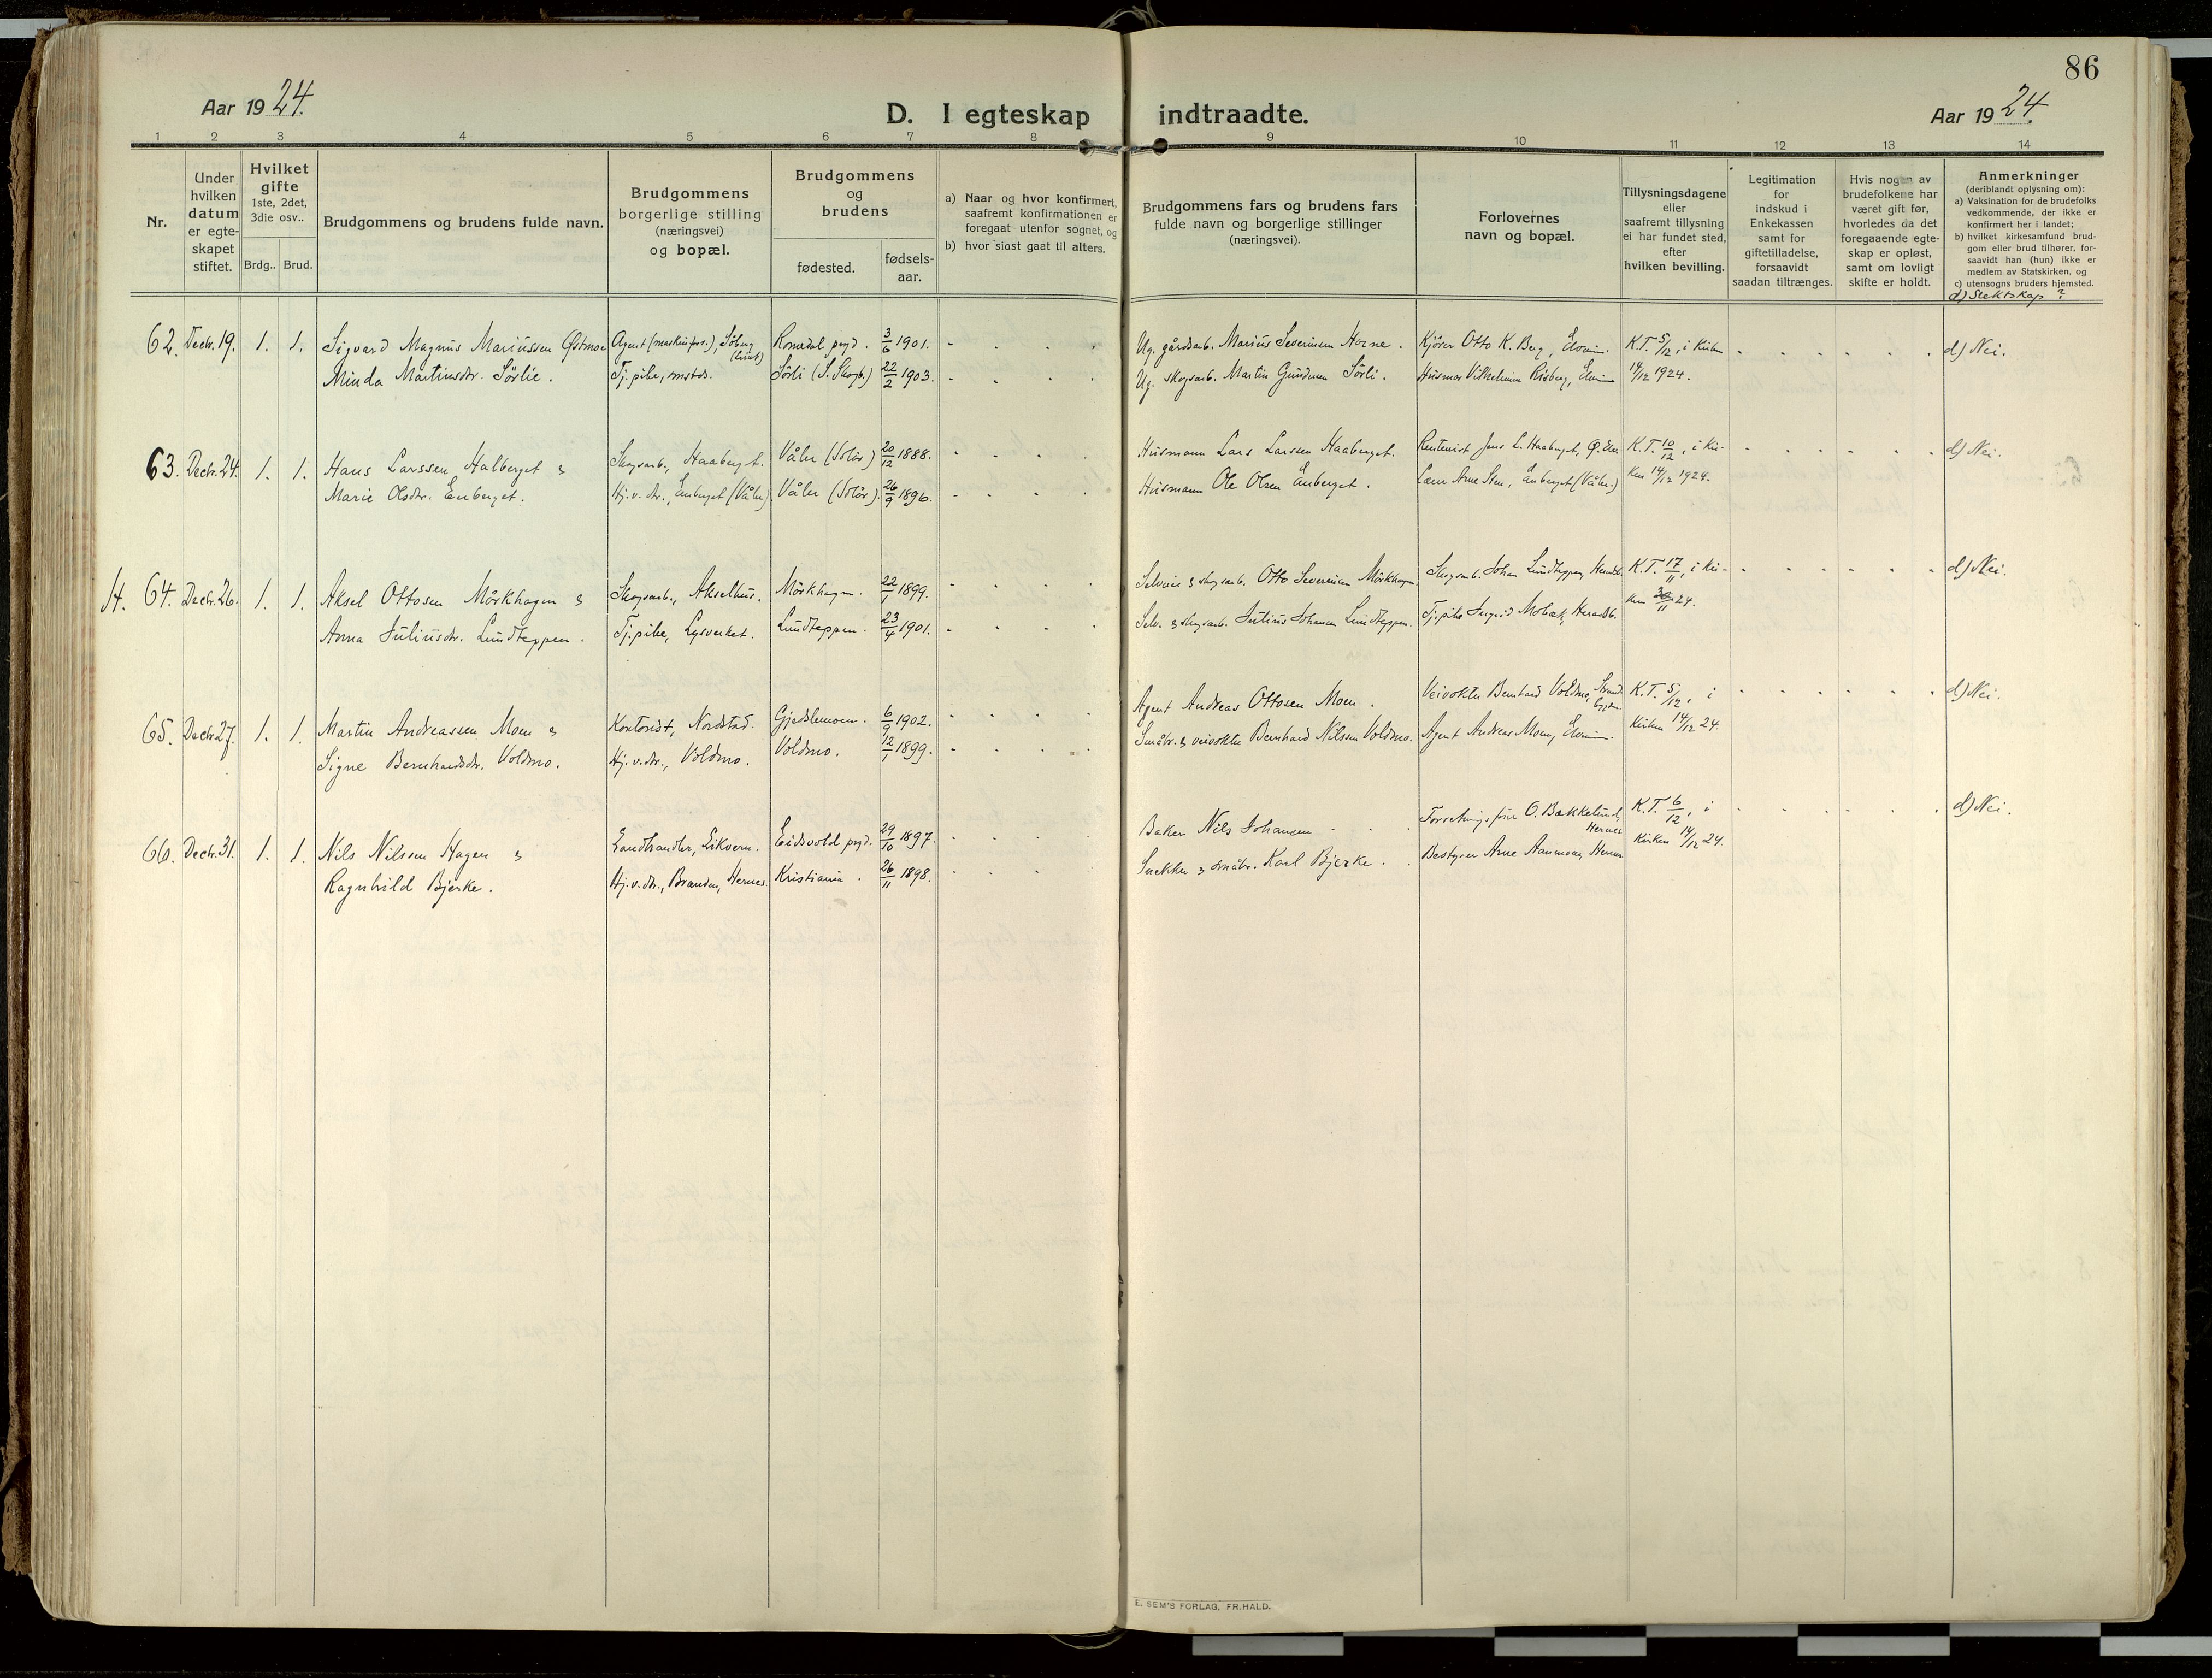 86
Aar 19 24.
D. I egteskap indtraadte.
Aar 19 24.
1 2 3 4 5 6 7 8 9 10 11 12 13 14
Nr.
Under hvilken datum er egte-skapet stiftet.
Hvilket gifte 1ste, 2det, 3die osv..
Brdg.. Brud.
Brudgommens og brudens fulde navn.
Brudgommens borgerlige stilling (næringsvei) og bopæl.
Brudgommens og brudens
fødested.
fødsels-aar.
a) Naar og hvor konfirmert, saafremt konfirmationen er foregaat utenfor sognet, og
b) hvor sidst gaat til alters.
Brudgommens fars og brudens fars fulde navn og borgerlige stillinger (næringsvei).
Forlovernes navn og bopæl.
Tillysningsdagene eller saafremt tillysning ei har fundet sted, efter hvilken bevilling.
Legitimation for indskud i Enkekassen samt for giftetilladelse, forsaavidt saadan tiltrænges.
Hvis nogen av brudefolkene har været gift før, hvorledes da det foregaaende egte-skap er opløst, samt om lovligt skifte er holdt.
Anmerkninger
(deriblandt oplysning om):
a) Vaksination for de brudefolks vedkommende, der ikke er konfirmert her i landet;
b) hvilket kirkesamfund brud-gom eller brud tilhører, for-saavidt han (hun) ikke er medlem av Statskirken, og
c) utensogns bruders hjemsted.
d) Slektskap?
62. Decbr. 19. 1. 1. Sigvard Magnus Mariussen Østmoe Agent (maskinforr.), Söberg Romedal pgjd. 3/6 1901. Ug. gårdsarb. Marius Severinsen Horne. Kjörer Otto K. Berg, Elverum. K.T. 5/12, i Kirken d) Nei.
Minda Martinsdtr. Sörlie. Tj.pike, Sörli (S. Skogb.) 22/2 1903. Ug. skogsarb. Martin Gundersen Sörli. Husmor Vilhelmine Risberg, Elverum 14/12 1924.
63. Decbr. 24. 1. 1. Hans Larssen Halberget & Skogsarb., Haaberget. Våler (Solör) 20/12 1888. Husmann Lars Larssen Haaberget. Rentenist Jens L. Haaberget, K.T. 10/12, i Kir- d) Nei.
Marie Olsdtr. Enberget. Hj.v. dtr., Enberget (Våler) Våler (Solör). 26/9 1896. Husmann Ole Olsen Enberget. Lærer Arne Sten, Enberget (Våler.) ken 14/12 1924.
H. 64. Decbr. 26. 1. 1. Aksel Ottosen Mörkhagen & Skogsarb., Akselhus. Mörkhagen. 22/1 1899. Selveier & skogsarb. Otto Severinsen Mörkhagen. Skogsarb. Johan Lundteppen, K.T. 17/11, i Kir- d) Nei.
Anna Juliusdtr. Lundteppen. Tj.pike, Lysverket. Lundteppen. 23/4 1901. Selv. & skogsarb. Julius Johansen Lundteppen. Tj.pike Ingrid Mobæk, Heradsb. ken 30/11 24.
65. Decbr. 27. 1. 1. Martin Andreassen Moen & Kontorist, Nordstad. Gjedslemoen. 6/9 1902. Agent Andreas Ottosen Moen. Veivokter Bernhard Voldmo, K.T. 5/12, i d) Nei.
Signe Bernhardsdtr. Voldmo. Hj.v. dtr., Voldmo. Voldmo. 12/1 1899. Småbr. & veivokter Bernhard Nilssen Voldmo. Agent Andreas Moen, Elverum. Kirken 14/12 24.
66. Decbr. 31. 1. 1. Nils Nilssen Hagen & Landhandler, Eikvern. Eidsvold pgjd. 29/10 1897. Baker Nils Johansen Forretningsförer O. Bækkelund, Hernes K.T. 6/12, i d) Nei.
Ragnhild Bjerke. Hj.v. dtr., Branden, Hernes. Kristiania. 26/11 1898. Snekker & småbr. Karl Bjerke. Bestyrer Arne Aanmoen, Hernes Kirken 14/12 24.
E. SEM'S FORLAG, FR.HALD.